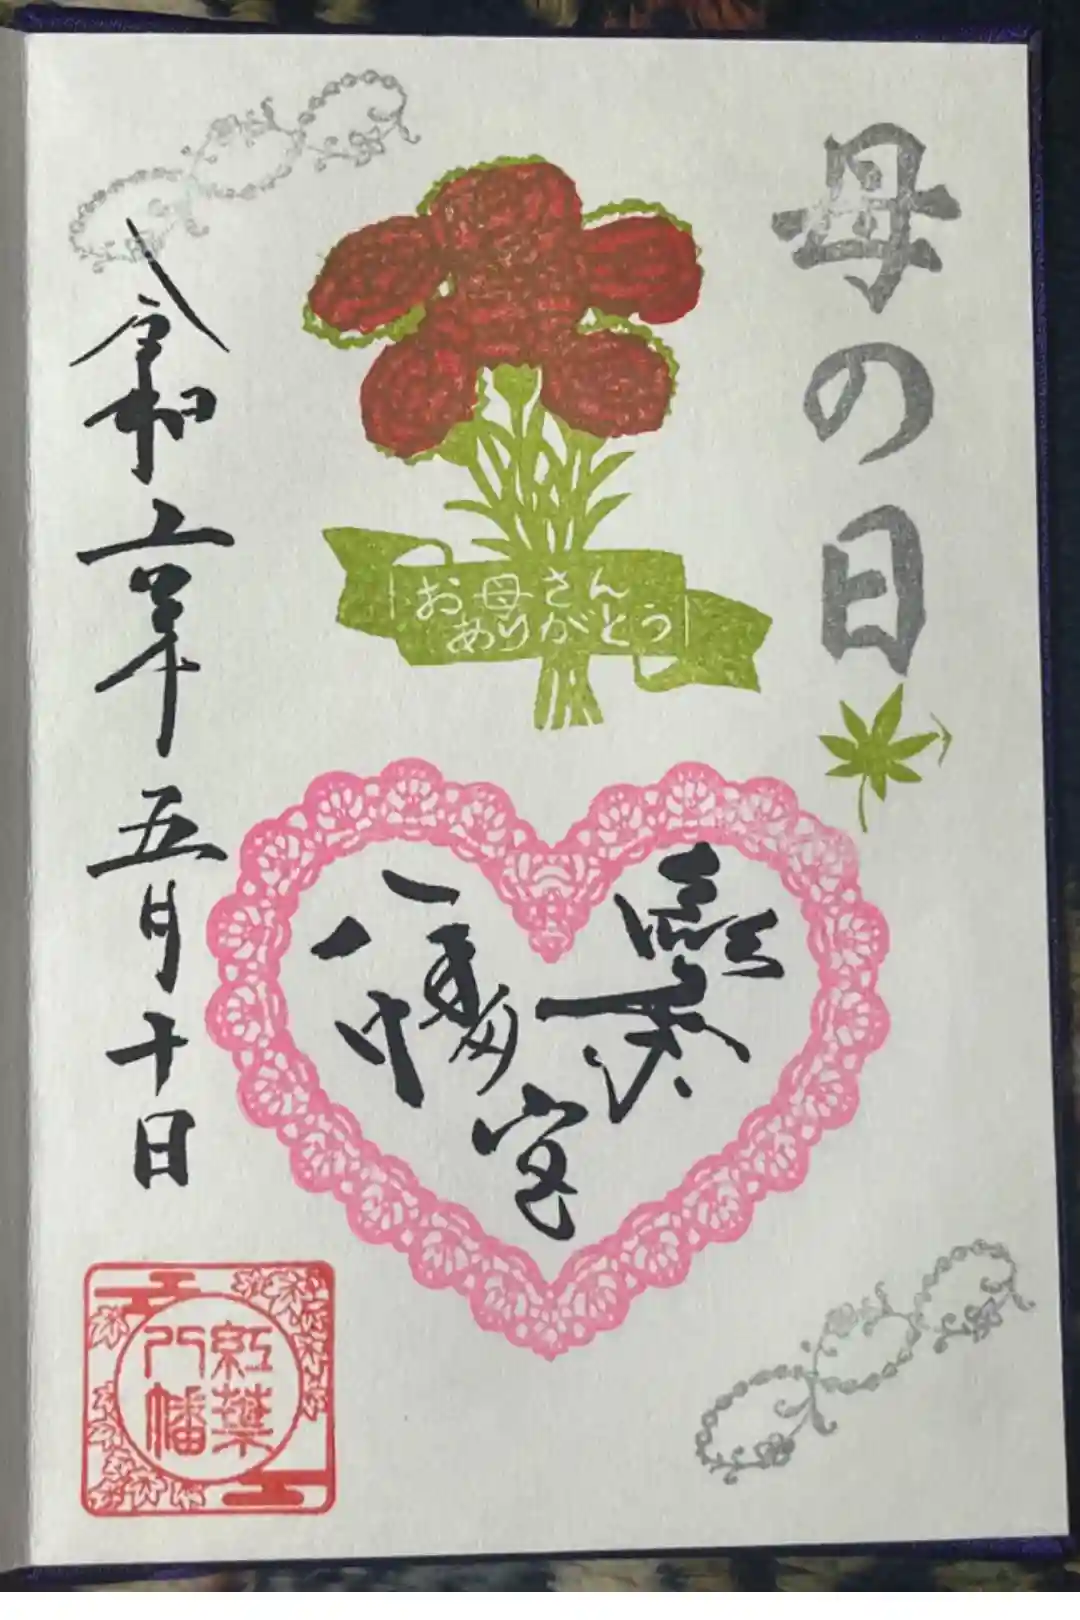 母の日
お母さん
ありがとう
紅葉
八幡宮
令和六年五月十日
紅葉
八幡